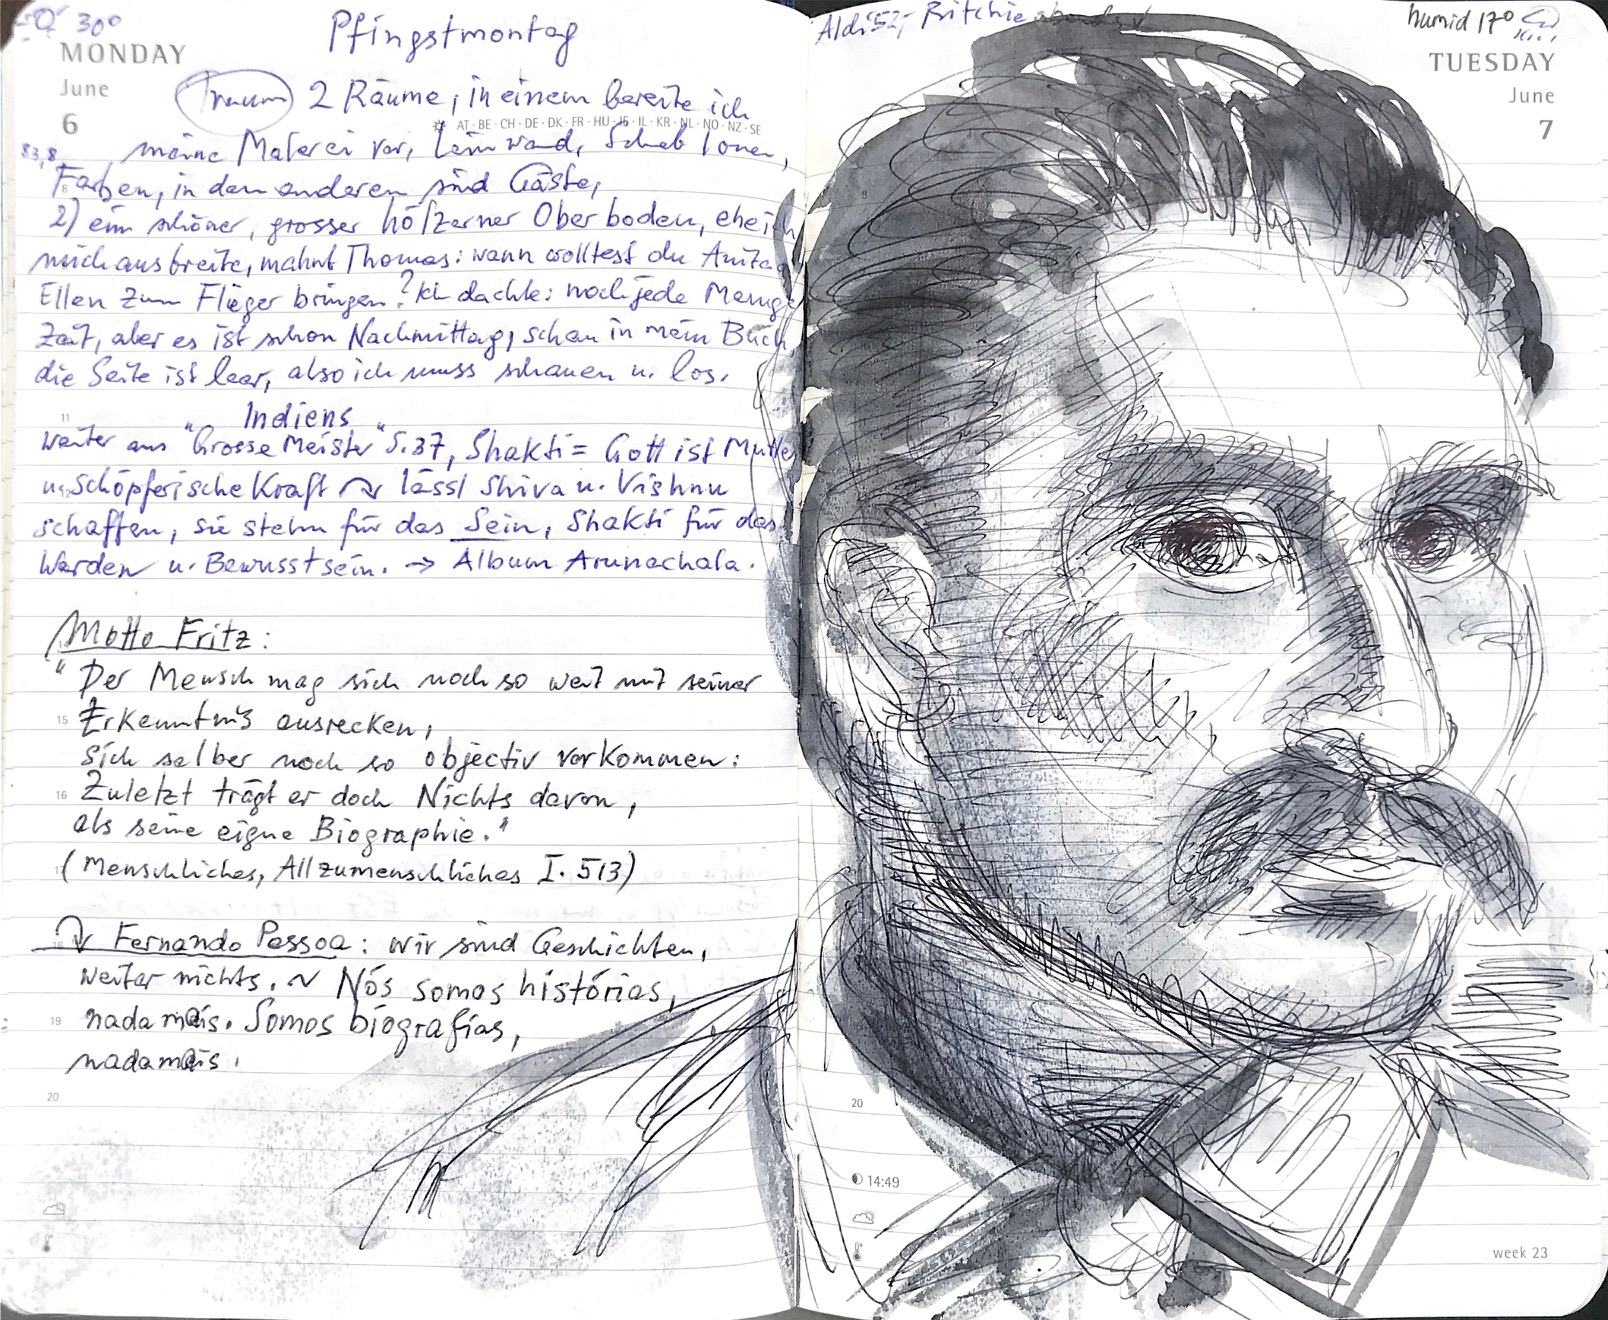 30°
Pfingstmontag
MONDAY
June
6
Traum 2 Räume, in einem bereite ich
AT · BE · CH · DE · DK · FR · HU · IS · IL · KR · NL · NO · NZ · SE
83,8
meine Malerei vor, Leinwand, Schablonen,
8
Farben, in dem anderen sind Gäste,
2) ein schöner, grosser hölzerner Oberboden, ehe ich
mich ausbreite, mahnt Thomas: wann wolltest du
Ellen zum Flieger bringen? Ich dachte: noch jede Menge
Zeit, aber es ist schon Nachmittag, schau in mein Buch
die Seite ist leer, also ich muss schauen u. los.
11
Indiens
weiter aus "Grosse Meister" S.37, Shakti = Gott ist Mutter
u. Schöpferische Kraft ~> lässt Shiva u. Vishnu
schaffen, sie stehn für das Sein, Shakti für das
Werden u. Bewusstsein. → Album Arunachala.
Motto Fritz:
"Der Mensch mag sich noch so weit mit seiner
15
Erkenntnis ausrecken,
sich selber noch so objectiv vorkommen:
16
Zuletzt trägt er doch Nichts davon,
als seine eigne Biographie."
(Menschliches, Allzumenschliches I. 513)
18
Fernando Pessoa: wir sind Geschichten,
weiter nichts. ~ Nós somos histórias,
19
nada mais. Somos biografias,
nada mais.
20
Aldi 52,- Ritchie
humid 17°
TUESDAY
June
7
8
20
14:49
week 23